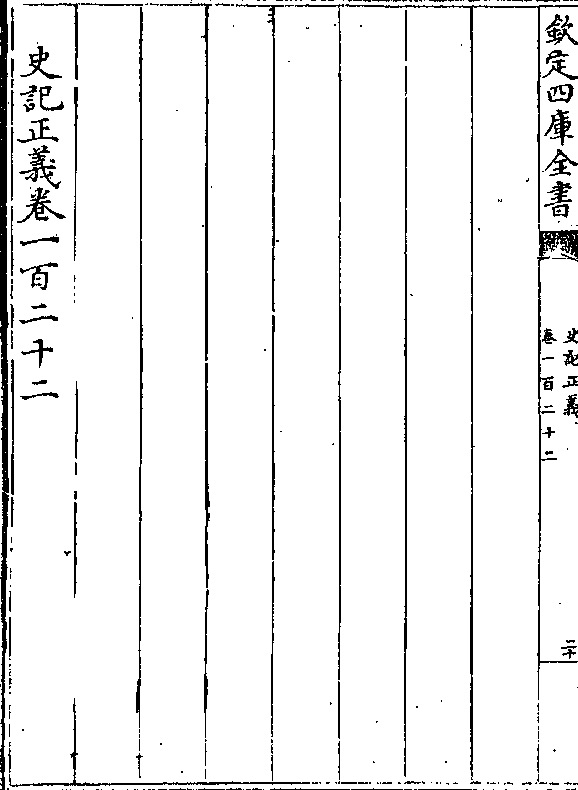 欽定四庫全書
史記正義
卷一百二十二
二十
史記正義卷一百二十二